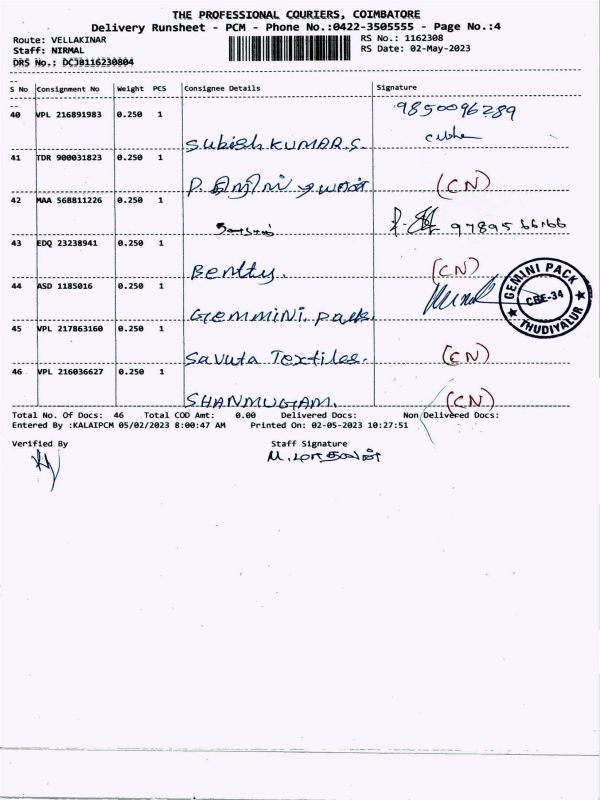 THE PROFESSIONAL COURIERS, COIMBATORE
Delivery Runsheet - PCM - Phone No.:0422-3505555 - Page No.:4
Route: VELLAKINAR
RS No.: 1162308
Staff: NIRMAL
RS Date: 02-May-2023
DRS No.: DCJB116230804
S No Consignment No Weight PCS Consignee Details Signature
40 VPL 216891983 0.250 1 9850096289
Subish KUMAR.S.
41 TDR 900031823 0.250 1
(CN)
42 MAA 568811226 0.250 1
9789566166
43 EDQ 23238941 0.250 1
Bentty. (CN)
44 ASD 1185016 0.250 1
GEMINI PACK
CBE-34
THUDIYALUR
GEMMINI. pack.
45 VPL 217863160 0.250 1
Savuta Textiles. (CN)
46 VPL 216036627 0.250 1
SHANMUGAM. (CN)
Total No. Of Docs: 46 Total COD Amt: 0.00 Delivered Docs: Non Delivered Docs:
Entered By :KALAIPCM 05/02/2023 8:00:47 AM Printed On: 02-05-2023 10:27:51
Verified By Staff Signature